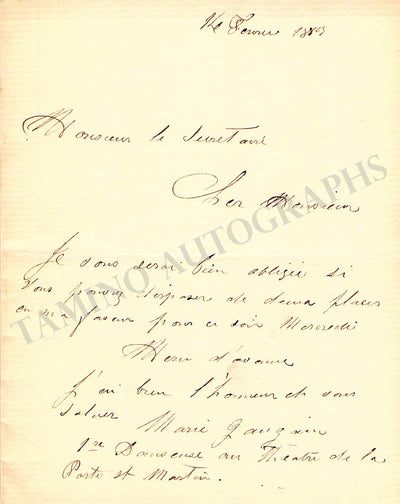 14 Fevrier 1883
Monsieur le Secretaire
Cher Monsieur
Je vous serai bien obligée si
vous pouvez disposer de deux places
en ma faveur pour ce soir Mercredi
Merci d'avance
J'ai bien l'honneur de vous
saluer
Marie Gaugain
1re Danseuse au Théatre de la
Porte St Martin.
TAMINO AUTOGRAPHS